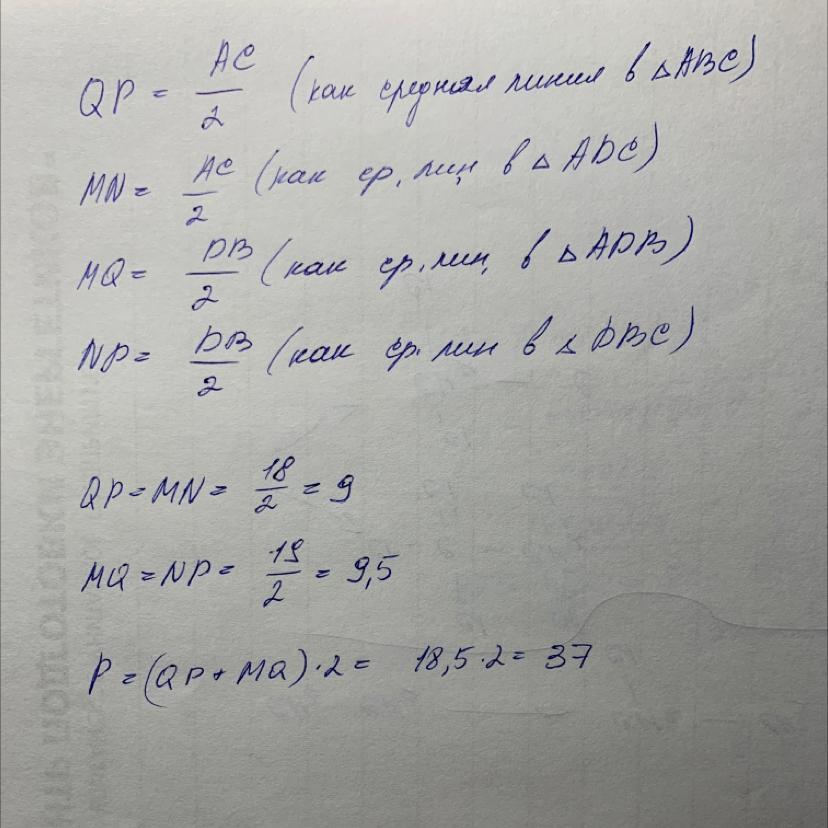 QP = AC/2 (как средняя линия в △ABC)
MN = AC/2 (как ср. лин. в △ADC)
MQ = DB/2 (как ср. лин. в △ADB)
NP = DB/2 (как ср. лин в △DBC)
QP = MN = 18/2 = 9
MQ = NP = 19/2 = 9,5
P = (QP + MQ) · 2 = 18,5 · 2 = 37